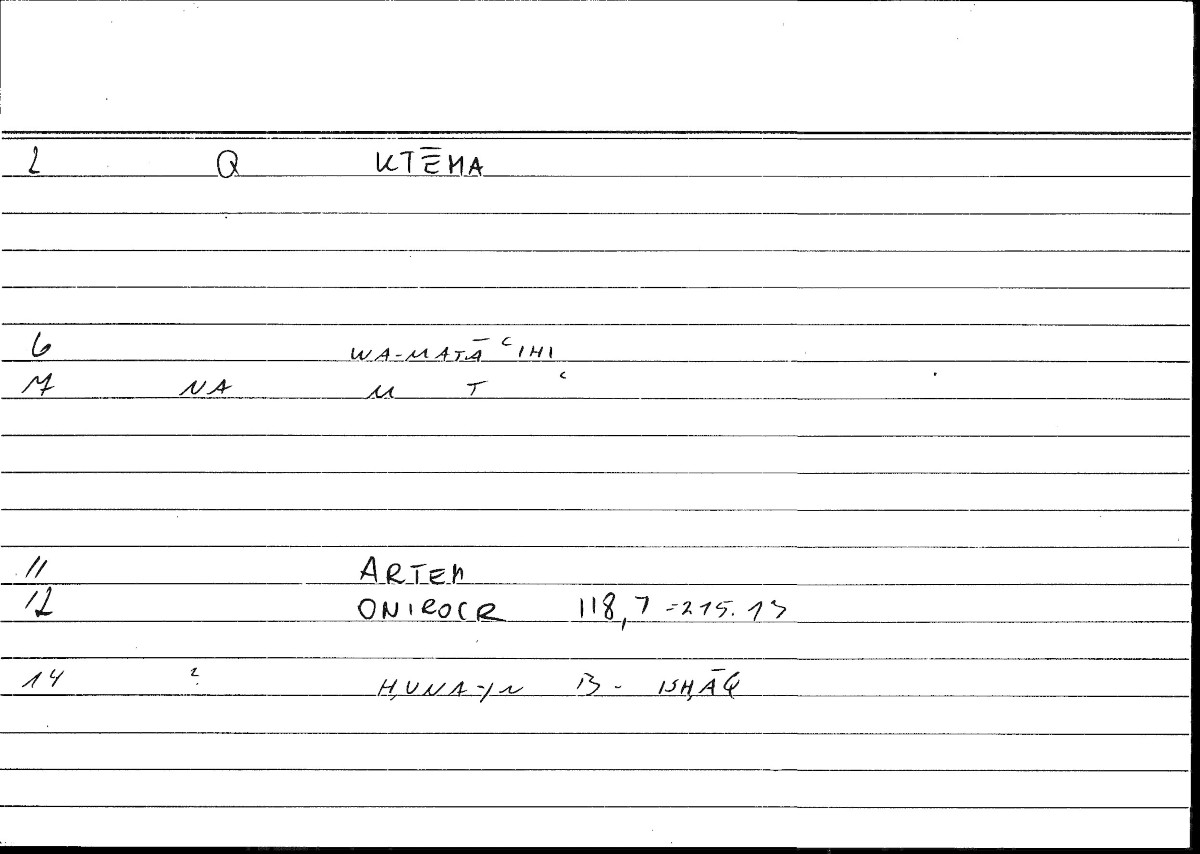 2 Q KTĒMA
6 WA-MATĀ ʿIHI
7 NA M T ʿ
11 ARTEM
12 ONIROCR 118,7 =215.13
14 ? ḤUNA-YN B- ISḤĀQ